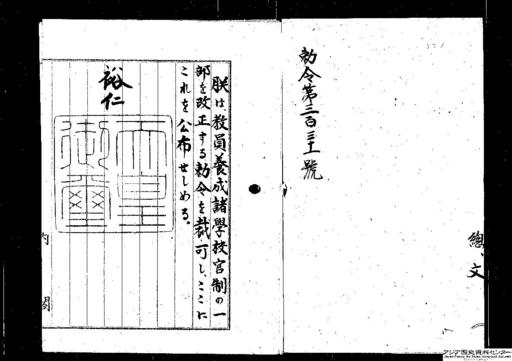 勅令第三百三十一號
朕は教員養成諸學校官制の一
部を改正する勅令を裁可し、ここに
これを公布せしめる。
裕仁
天皇御璽
内閣
總、文
アジア歴史資料センター